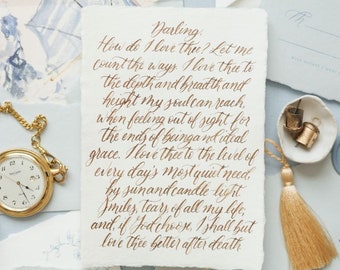 Darling,
How do I love thee? Let me
count the ways. I love thee to
the depth and breadth and
height my soul can reach,
when feeling out of sight for
the ends of being and ideal
grace. I love thee to the level of
every day's most quiet need,
by sun and candle-light
Smiles, tears, of all my life,
and, if God choose, I shall but
love thee better after death